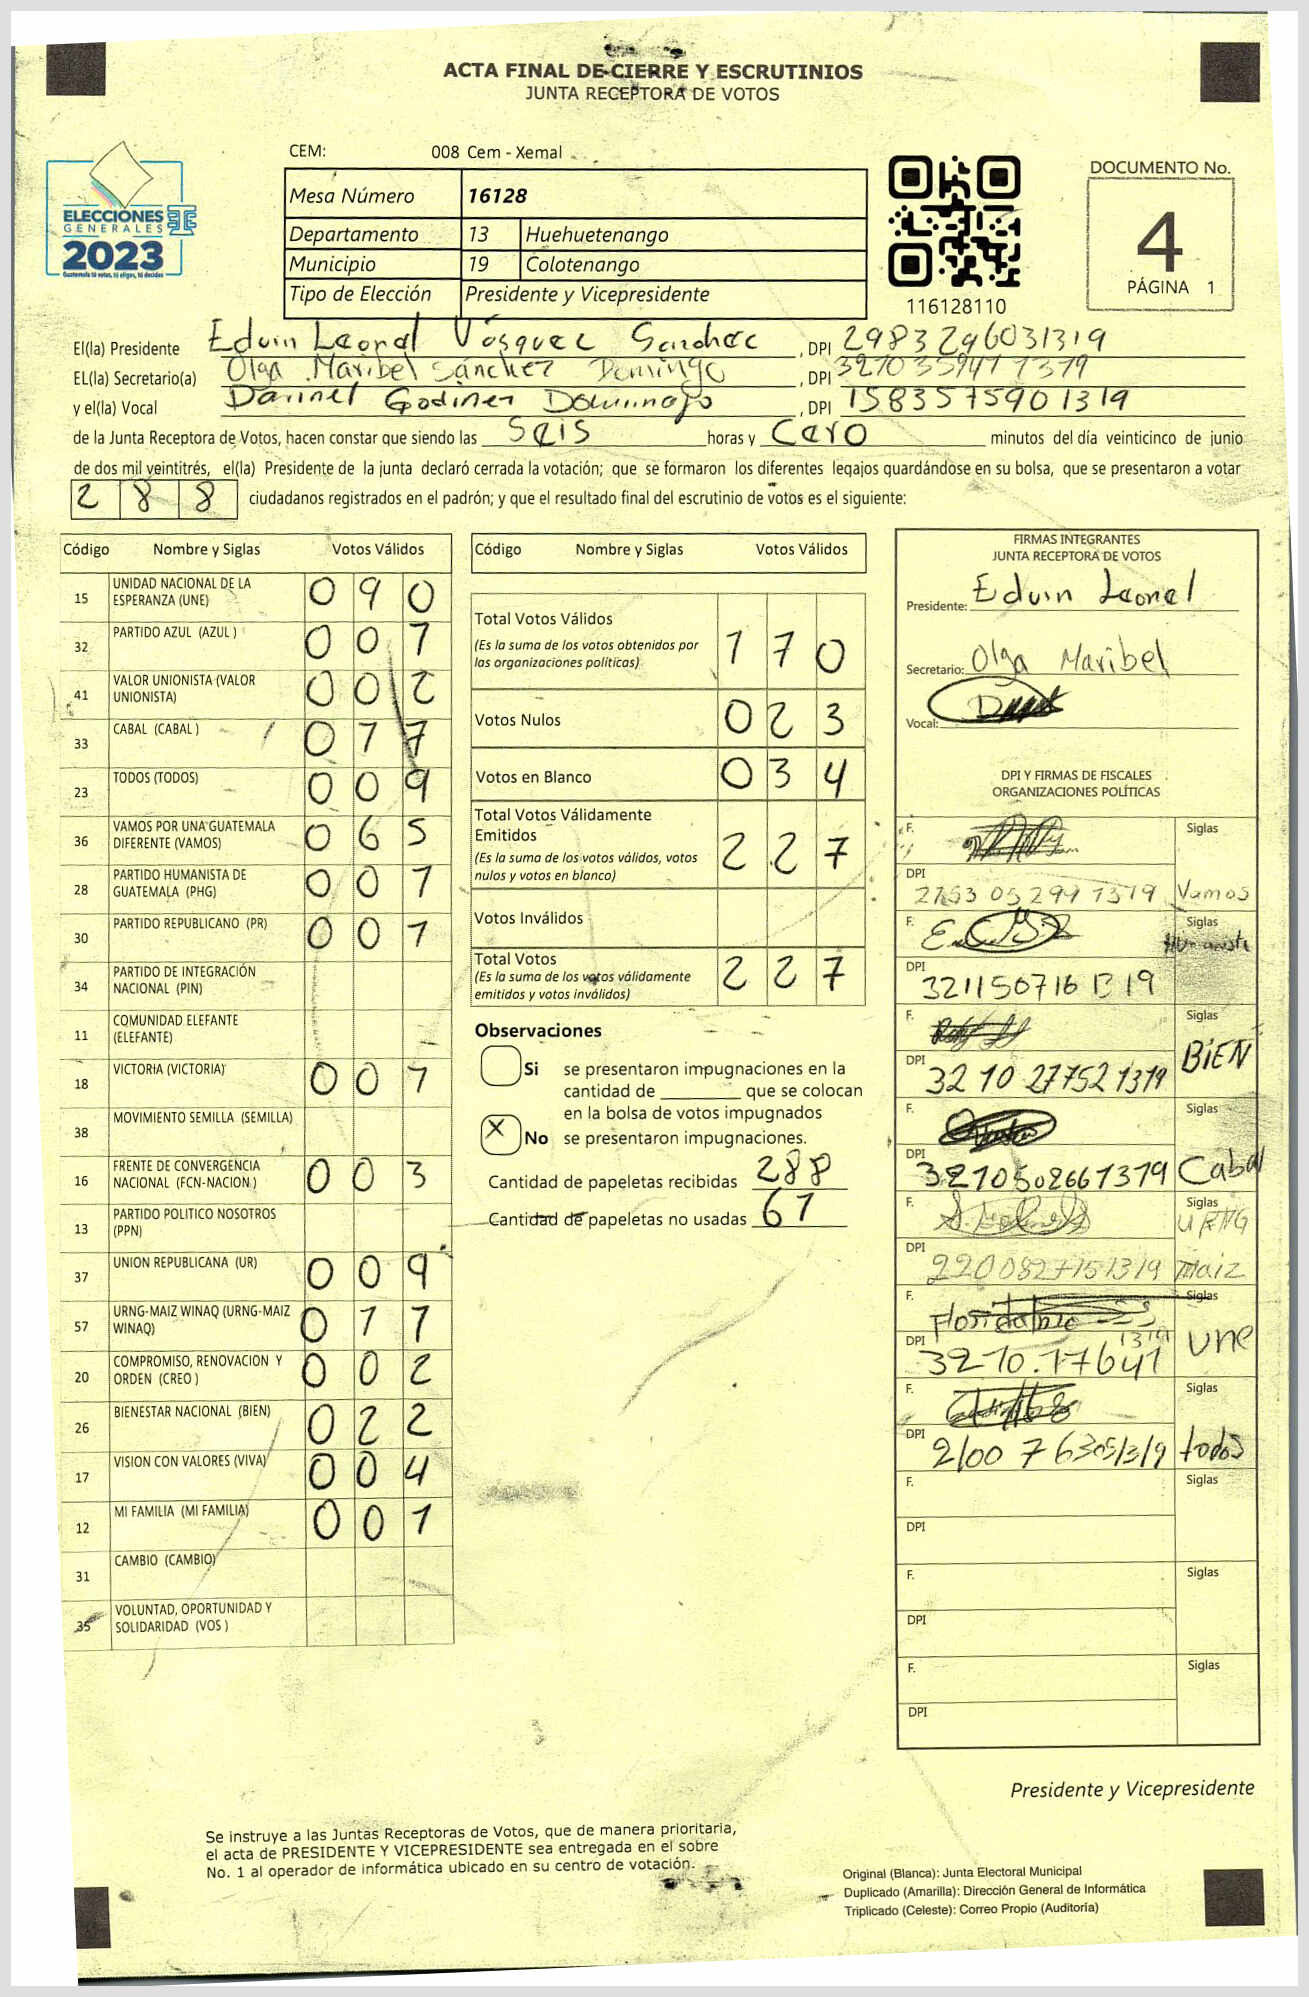 ACTA FINAL DE CIERRE Y ESCRUTINIOS
JUNTA RECEPTORA DE VOTOS
ELECCIONES
GENERALES
2023
Guatemala tú votas, tú eliges, tú decides
CEM: 008 Cem - Xemal
Mesa Número 16128
Departamento 13 Huehuetenango
Municipio 19 Colotenango
Tipo de Elección Presidente y Vicepresidente
116128110
DOCUMENTO No.
4
PÁGINA 1
El(la) Presidente Edvin Leonel Vásquez Sanchec , DPI 2983296031319
EL(la) Secretario(a) Olga Maribel Sánchez Domingo , DPI
y el(la) Vocal Godinez Domingo , DPI 1583575901319
de la Junta Receptora de Votos, hacen constar que siendo las Seis horas y Cero minutos del día veinticinco de junio
de dos mil veintitrés, el(la) Presidente de la junta declaró cerrada la votación; que se formaron los diferentes legajos guardándose en su bolsa, que se presentaron a votar
288 ciudadanos registrados en el padrón; y que el resultado final del escrutinio de votos es el siguiente:
Código Nombre y Siglas Votos Válidos
15 UNIDAD NACIONAL DE LA ESPERANZA (UNE) 090
32 PARTIDO AZUL (AZUL ) 007
41 VALOR UNIONISTA (VALOR UNIONISTA) 002
33 CABAL (CABAL ) 077
23 TODOS (TODOS) 009
36 VAMOS POR UNA GUATEMALA DIFERENTE (VAMOS) 065
28 PARTIDO HUMANISTA DE GUATEMALA (PHG) 001
30 PARTIDO REPUBLICANO (PR) 001
34 PARTIDO DE INTEGRACIÓN NACIONAL (PIN)
11 COMUNIDAD ELEFANTE (ELEFANTE)
18 VICTORIA (VICTORIA) 001
38 MOVIMIENTO SEMILLA (SEMILLA)
16 FRENTE DE CONVERGENCIA NACIONAL (FCN-NACION ) 003
13 PARTIDO POLITICO NOSOTROS (PPN)
37 UNION REPUBLICANA (UR) 009
57 URNG-MAIZ WINAQ (URNG-MAIZ WINAQ) 011
20 COMPROMISO, RENOVACION Y ORDEN (CREO ) 002
26 BIENESTAR NACIONAL (BIEN) 022
17 VISION CON VALORES (VIVA) 004
12 MI FAMILIA (MI FAMILIA) 001
31 CAMBIO (CAMBIO)
35 VOLUNTAD, OPORTUNIDAD Y SOLIDARIDAD (VOS )
Código Nombre y Siglas Votos Válidos
Total Votos Válidos 170
(Es la suma de los votos obtenidos por
las organizaciones políticas)
Votos Nulos 023
Votos en Blanco 034
Total Votos Válidamente
Emitidos 227
(Es la suma de los votos válidos, votos
nulos y votos en blanco)
Votos Inválidos
Total Votos 227
(Es la suma de los votos válidamente
emitidos y votos inválidos)
Observaciones
Si se presentaron impugnaciones en la
cantidad de ________ que se colocan
en la bolsa de votos impugnados
X No se presentaron impugnaciones.
Cantidad de papeletas recibidas 288
Cantidad de papeletas no usadas 61
FIRMAS INTEGRANTES
JUNTA RECEPTORA DE VOTOS
Presidente: Edvin Leonel
Secretario: Olga Maribel
Vocal:
DPI Y FIRMAS DE FISCALES
ORGANIZACIONES POLÍTICAS
F. Siglas
DPI Vamos
F. Siglas
Humanista
DPI
F. Siglas
BIEN
DPI 3210 27752 1319
F. Siglas
DPI 3210502661319 Cabal
F. Siglas
URNG
DPI 2200827151319 maiz
F. Siglas
une
DPI 3210.17641 1319
F. Siglas
DPI 2100 763051319 todos
F. Siglas
DPI
F. Siglas
DPI
F. Siglas
DPI
Presidente y Vicepresidente
Se instruye a las Juntas Receptoras de Votos, que de manera prioritaria,
el acta de PRESIDENTE Y VICEPRESIDENTE sea entregada en el sobre
No. 1 al operador de informática ubicado en su centro de votación.
Original (Blanca): Junta Electoral Municipal
Duplicado (Amarilla): Dirección General de Informática
Triplicado (Celeste): Correo Propio (Auditoría)